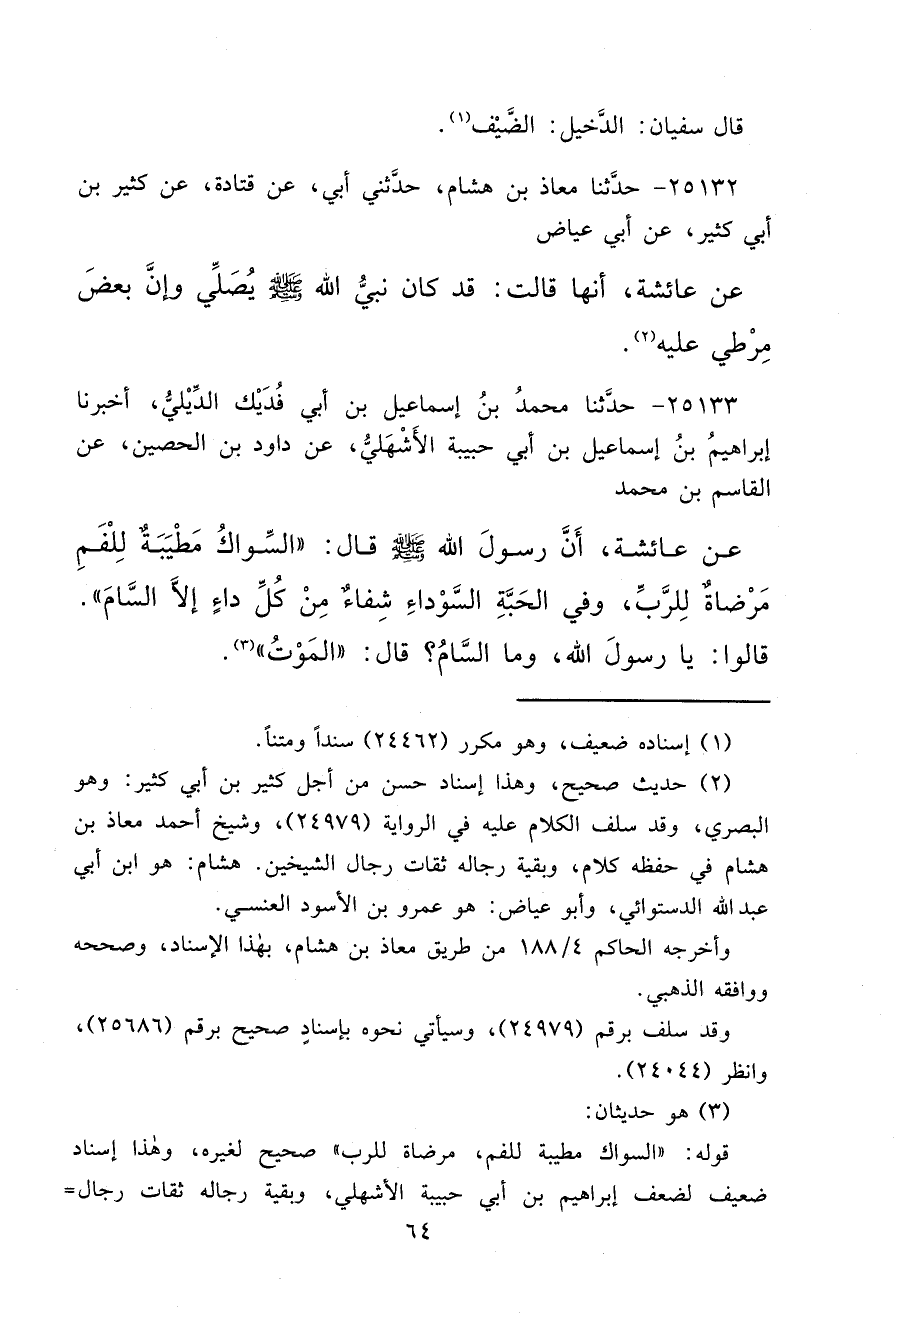 قال سفيان: الدَّخيل: الضَّيْف(١).
٢٥١٣٢- حدَّثنا معاذ بن هشام، حدَّثني أبي، عن قتادة، عن كثير بن
أبي كثير، عن أبي عياض
عن عائشة، أنها قالت: قد كان نبيُّ الله ﷺ يُصَلِّي وإنَّ بعضَ
مِرْطي عليه(٢).
٢٥١٣٣- حدَّثنا محمدُ بنُ إسماعيل بن أبي فُدَيْك الدِّيْليُّ، أخبرنا
إبراهيمُ بنُ إسماعيل بن أبي حبيبة الأَشْهَليُّ، عن داود بن الحصين، عن
القاسم بن محمد
عن عائشة، أَنَّ رسولَ الله ﷺ قال: «السِّواكُ مَطْيَبَةٌ لِلْفَمِ
مَرْضاةٌ لِلرَّبِّ، وفي الحَبَّةِ السَّوْداءِ شِفاءٌ مِنْ كُلِّ داءٍ إلاَّ السَّامَ».
قالوا: يا رسولَ الله، وما السَّامُ؟ قال: «المَوْتُ»(٣).
(١) إسناده ضعيف، وهو مكرر (٢٤٤٦٢) سنداً ومتناً.
(٢) حديث صحيح، وهذا إسناد حسن من أجل كثير بن أبي كثير: وهو
البصري، وقد سلف الكلام عليه في الرواية (٢٤٩٧٩)، وشيخ أحمد معاذ بن
هشام في حفظه كلام، وبقية رجاله ثقات رجال الشيخين. هشام: هو ابن أبي
عبدالله الدستوائي، وأبو عياض: هو عمرو بن الأسود العنسي.
وأخرجه الحاكم ١٨٨/٤ من طريق معاذ بن هشام، بهٰذا الإسناد، وصححه
ووافقه الذهبي.
وقد سلف برقم (٢٤٩٧٩)، وسيأتي نحوه بإسنادٍ صحيح برقم (٢٥٦٨٦)،
وانظر (٢٤٠٤٤).
(٣) هو حديثان:
قوله: «السواك مطيبة للفم، مرضاة للرب» صحيح لغيره، وهٰذا إسناد
ضعيف لضعف إبراهيم بن أبي حبيبة الأشهلي، وبقية رجاله ثقات رجال=
٦٤